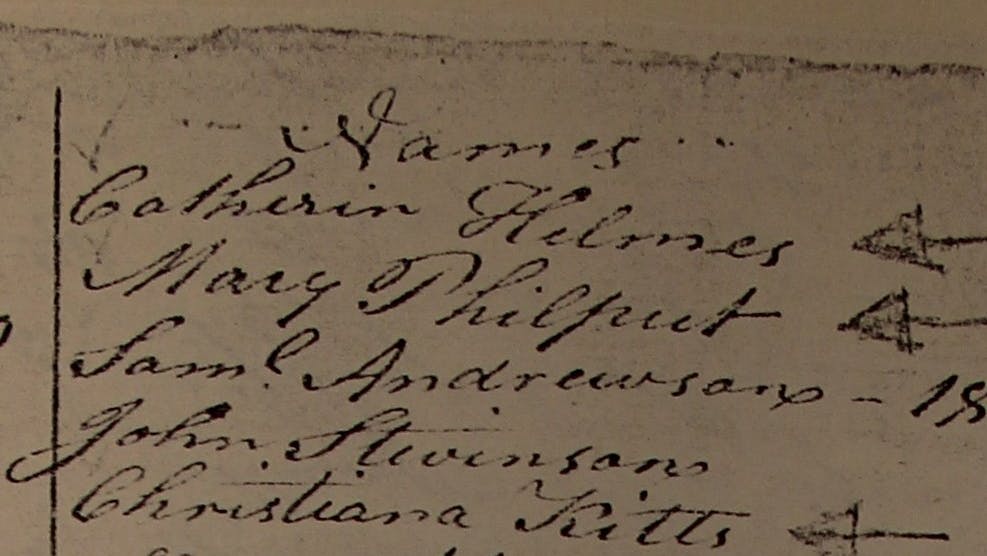 Names
Catherin Helmes
Mary Philput
Saml. Andrewson - 18
John Stevinson
Christiana Kitts